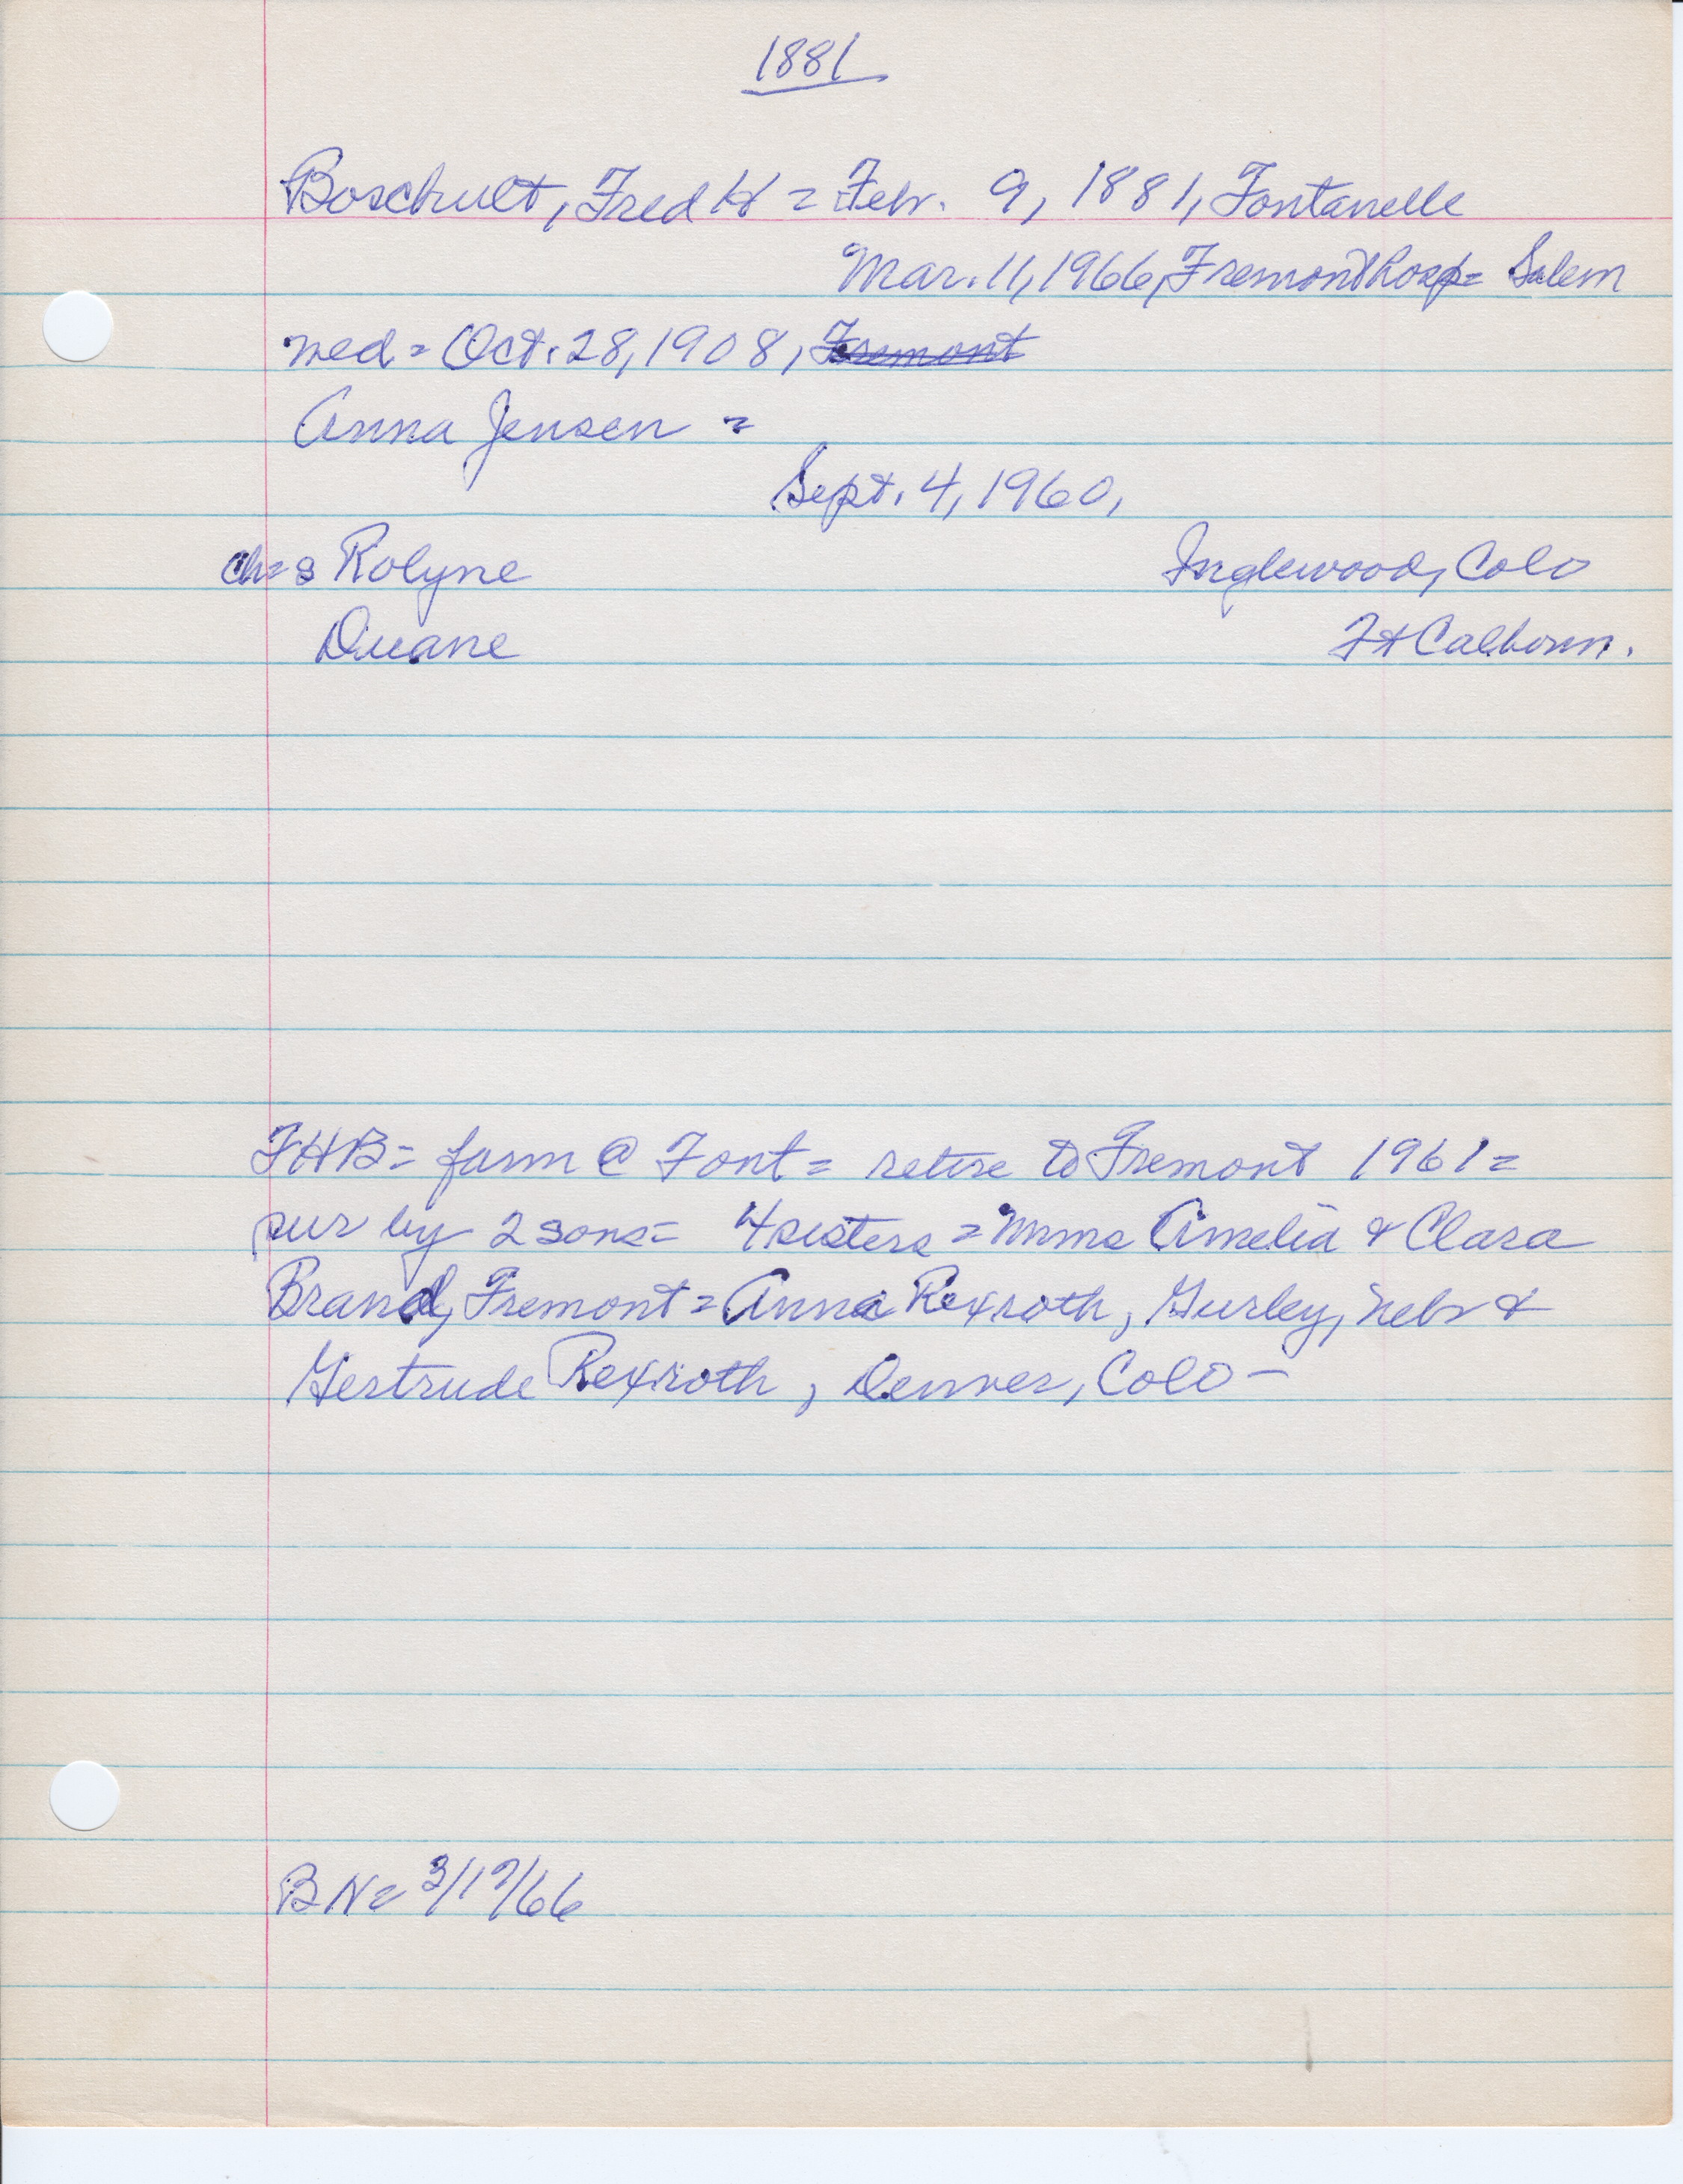 1881
Boschult, Fred H = Febr. 9, 1881, Fontanelle
Mar. 11, 1966, Fremont Hosp = Salem
wed = Oct. 28, 1908, Fremont
Anna Jensen =
Sept. 4, 1960,
ch = s Rolyne Inglewood, Colo
Duane Ft Calhoun.
FHB = farm @ Font = retire to Fremont 1961 =
sur by 2 sons = 4 sisters = Mmes Amelia & Clara
Brand, Fremont = Anna Rexroth, Gurley, Nebr &
Gertrude Rexroth, Denver, Colo -
BN = 3/17/66